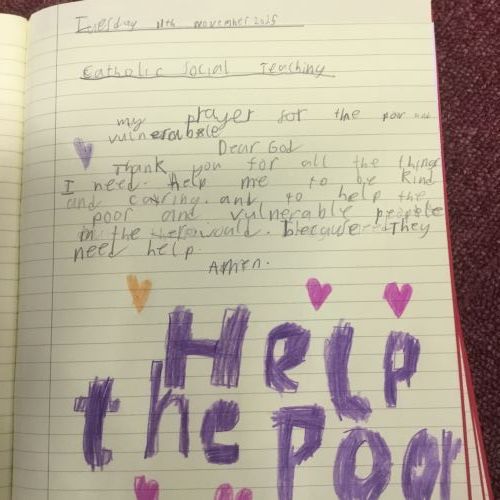 Tuesday 11th november 2025
Catholic Social Teaching
my prayer for the poor and
vulnerable
Dear God
Thank you for all the things
I need. Help me to be kind
and caring. and to help the
poor and vulnerable people
in the would. because They
need help.
Amen.
Help
the poor